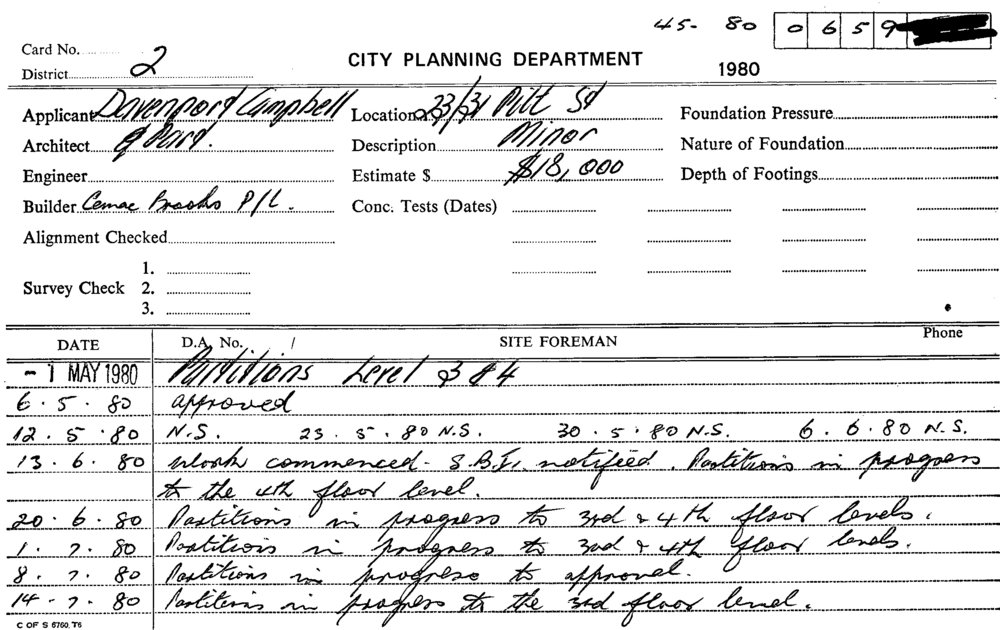 45- 80 0659
Card No.
District 2
CITY PLANNING DEPARTMENT
1980
Applicant Davenport Campbell
Location 23/31 Pitt St
Foundation Pressure
Architect & Part.
Description Minor
Nature of Foundation
Engineer
Estimate $ $18,000
Depth of Footings
Builder Cemac Brooks P/L.
Conc. Tests (Dates)
Alignment Checked
1.
Survey Check 2.
3.
DATE D.A. No. / SITE FOREMAN Phone
- 1 MAY 1980 Partitions Level 3 & 4
6 . 5 . 80 approved
12 . 5 . 80 N.S. 23 . 5 . 80 N.S. 30 . 5 . 80 N.S. 6 . 6 . 80 N.S.
13 . 6 . 80 Work commenced - S.B.I. notified. Partitions in progress
to the 4th floor level.
20 . 6 . 80 Partitions in progress to 3rd & 4th floor levels.
1 . 7 . 80 Partitions in progress to 3rd & 4th floor levels.
8 . 7 . 80 Partitions in progress to approval.
14 . 7 . 80 Partitions in progress to the 3rd floor level.
C OF S 6760. T6